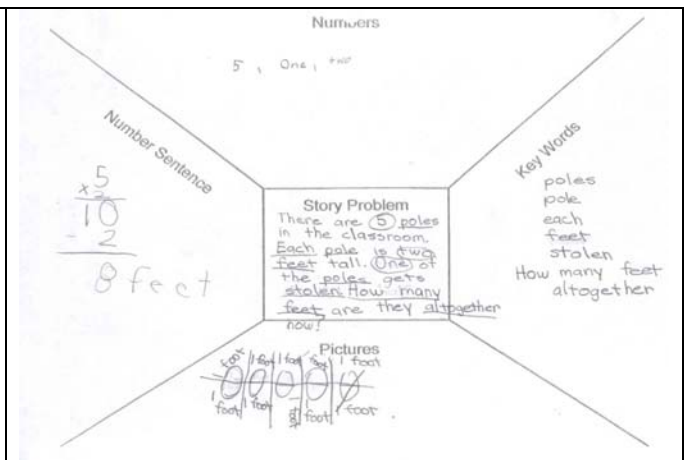 Numbers
5, One, two
Number Sentence
5
x2
10
- 2
8 feet
Story Problem
There are 5 poles
in the classroom.
Each pole is two
feet tall. One of
the poles gets
stolen. How many
feet are they altogether
now?
Key Words
poles
pole
each
feet
stolen
How many feet
altogether
Pictures
1 foot 1 foot 1 foot foot 1 foot
1 foot 1 foot 1 foot 1 foot 1 foot